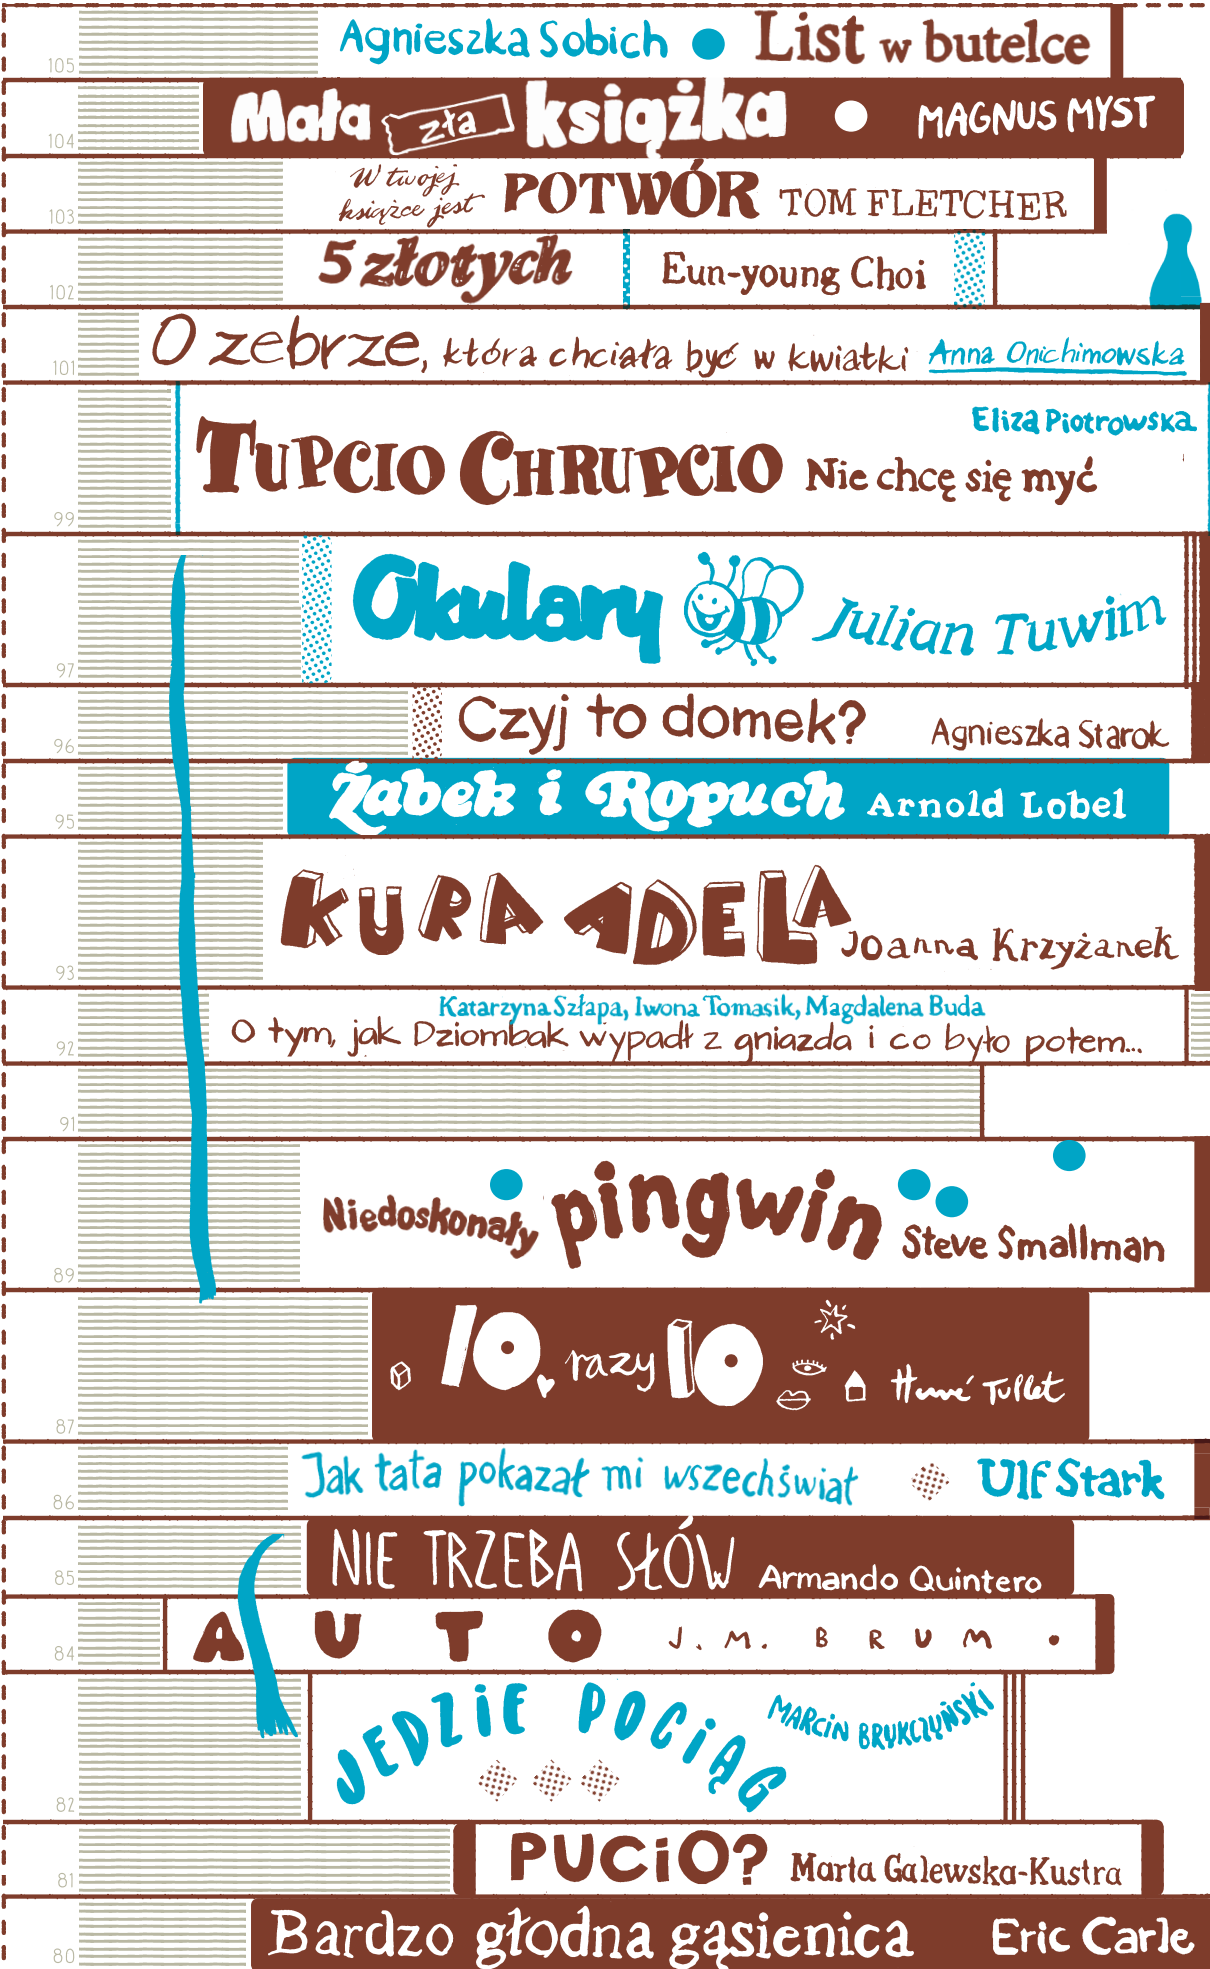 105 Agnieszka Sobich List w butelce
104 Mała zła książka MAGNUS MYST
W twojej
103 książce jest POTWÓR TOM FLETCHER
102 5 złotych Eun-young Choi
101 O zebrze, która chciała być w kwiatki Anna Onichimowska
Eliza Piotrowska
TUPCIO CHRUPCIO Nie chcę się myć
99
Okulary Julian Tuwim
97
96 Czyj to domek? Agnieszka Starok
95 Żabek i Ropuch Arnold Lobel
KURA ADELA Joanna Krzyżanek
93
Katarzyna Szłapa, Iwona Tomasik, Magdalena Buda
92 O tym, jak Dziombak wypadł z gniazda i co było potem...
91
Niedoskonały pingwin Steve Smallman
89
10 razy 10 Hervé Tullet
87
86 Jak tata pokazał mi wszechświat Ulf Stark
85 NIE TRZEBA SŁÓW Armando Quintero
84 AUTO J. M. BRUM
JEDZIE POCIĄG MARCIN BRYKCZYŃSKI
82
81 PUCIO? Marta Galewska-Kustra
80 Bardzo głodna gąsienica Eric Carle